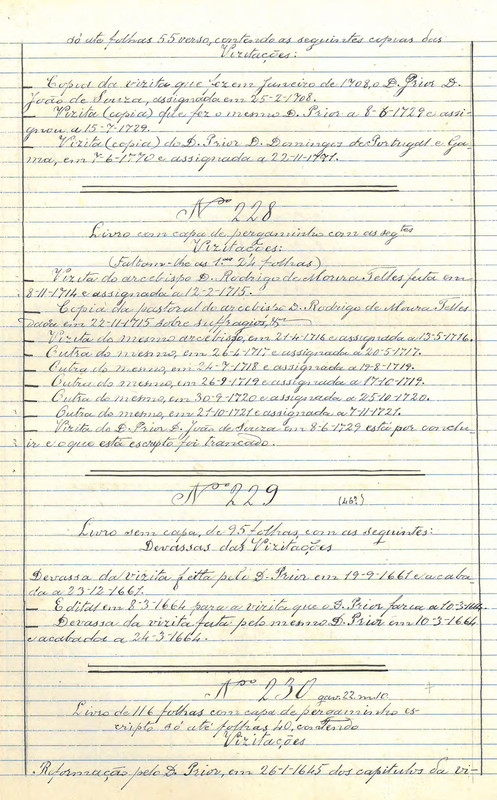 só até folhas 55 verso, contendo as seguintes copias das
Vizitações:
— Copia da vizita que fez em Janeiro de 1708, o D. Prior D.
João de Souza, assignada em 25-2-1708.
— Vizita (copia) que fez o mesmo D. Prior a 8-6-1729 e assi-
gnou a 15-7-1729.
— Vizita (copia) do D. Prior D. Domingos de Portugal e Ga-
ma, em 7-6-1770 e assignada a 22-11-1771.
Nº 228
Livro com capa de pergaminho com as segtes
Vizitações:
(Faltam-lhe as 1.as 24 folhas)
— Vizita do arcebispo D. Rodrigo de Moura Telles feita em
8-11-1714 e assignada a 12-2-1715.
— Copia da pastoral do arcebispo D. Rodrigo de Moura Telles
dada em 22-11-1715 sobre suffragios,
— Vizita do mesmo arcebispo, em 21-4-1716 e assignada a 13-5-1716.
— Outra do mesmo, em 26-4-1717 e assignada a 20-5-1717.
— Outra do mesmo, em 24-7-1718 e assignada a 17-8-1719.
— Outra do mesmo, em 26-9-1719 e assignada a 17-10-1719.
— Outra do mesmo, em 30-9-1720 e assignada a 25-10-1720.
— Outra do mesmo, em 21-10-1721 e assignada a 7-11-1721.
— Vizita do D. Prior D. João de Souza em 8-6-1729 está por conclu-
ir e o que está escripto foi trancado.
Nº 229 (46º)
Livro sem capa, de 95 folhas, com as seguintes:
Devassas das Vizitações
Devassa da vizita feita pelo D. Prior em 19-9-1661 e acaba-
da a 23-12-1661.
— Edital em 8-3-1664 para a vizita que o D. Prior faria a 10-3-1664.
— Devassa da vizita feita pelo mesmo D. Prior em 10-3-1664
e acabada a 24-3-1664.
Nº 230 gav. 22 m. 10
Livro de 116 folhas com capa de pergaminho es-
cripto só até folhas 40, contendo
Vizitações
Reformação pelo D. Prior, em 26-1-1645 dos capitulos da vi-